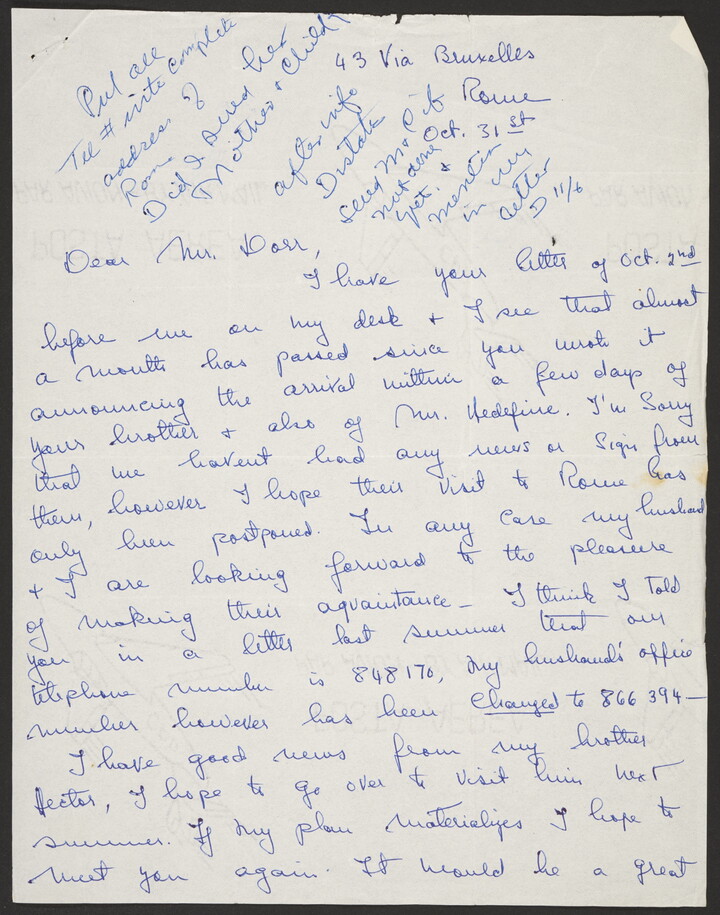 Put all
Tel # into complete
address of her
Rome
Did I send
Mother & Child?
after info
Distate
Send Mr & 
not done
yet. &
mention
in my
letter
D 11/6
43 Via Bruxelles
Rome
Oct. 31st
Dear Mr. Dorr,
I have your letter of Oct. 2nd
before me on my desk & I see that almost
a month has passed since you wrote it
announcing the arrival within a few days of
your brother & also of Mr. Hedefine. I'm Sorry
that we havent had any news or sign from
them, however I hope their visit to Rome has
only been postponed. In any case my husband
& I are looking forward to the pleasure
of making their aquaintance — I think I told
you in a letter last summer that our
telephone number is 848170, my husband's office
number however has been changed to 866 394 —
I have good news from my brother
Hector, I hope to go over to visit him next
summer. If my plan materializes I hope to
meet you again. It would be a great